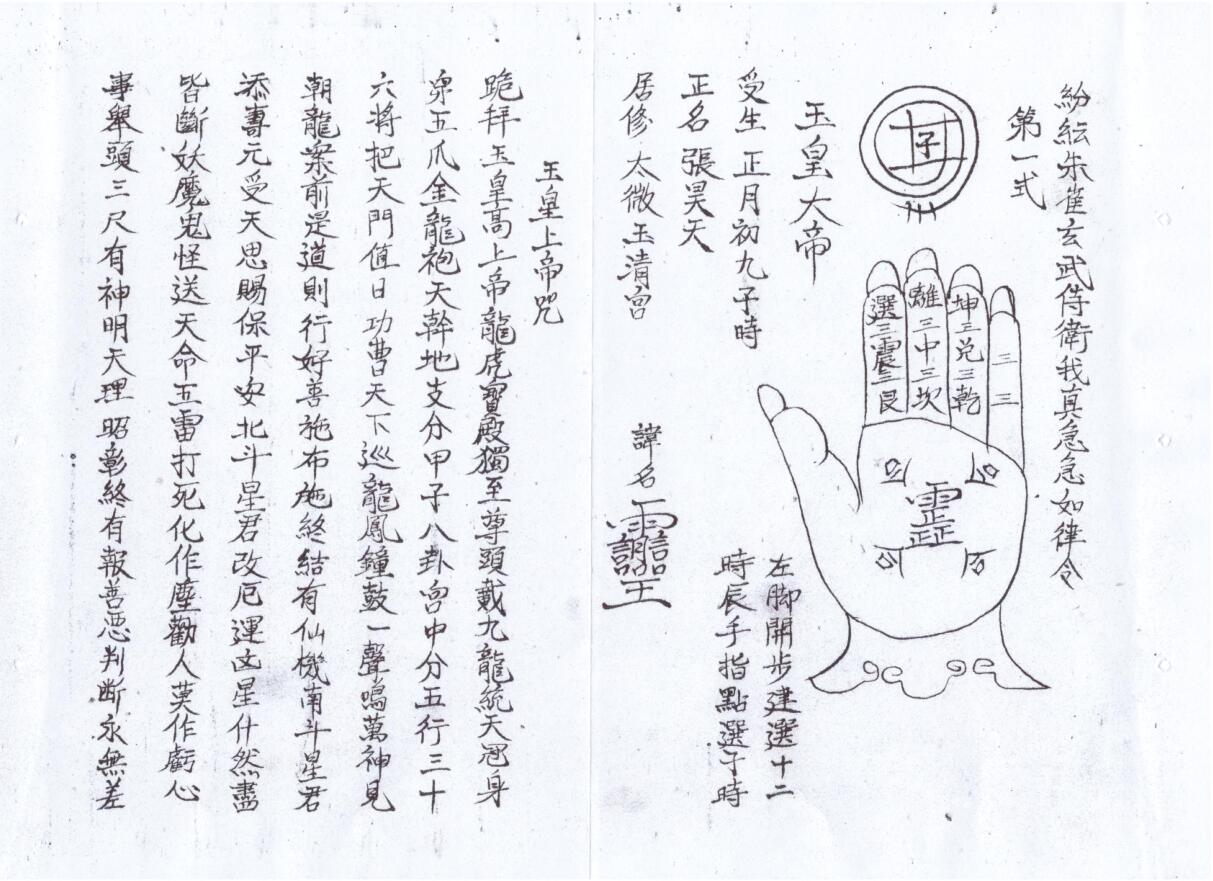 紛紜朱雀玄武侍衛我真急急如律令
第一式
子
選三震三艮
離三中三坎
坤三兌三乾
三三
左脚開步建選十二
時辰手指點選子時
玉皇大帝
受生正月初九子時
正名張昊天
居修太微玉清宮
諱名
玉皇上帝咒
跪拜玉皇高上帝龍虎寶殿獨至尊頭戴九龍統天冠身
第五爪金龍袍天幹地支分甲子八卦宮中分五行三十
六將把天門值日功曹天下巡龍鳳鐘鼓一聲鳴萬神見
朝龍案前是道則行好善施布施終結有仙機南斗星君
添壽元受天思賜保平安北斗星君改厄運凶星什然盡
皆斷妖魔鬼怪送天命五雷打死化作塵勸人莫作虧心
事舉頭三尺有神明天理昭彰終有報善惡判断永無差